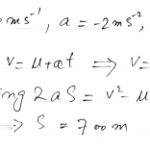 ms⁻¹, a = -2ms⁻²,
v = u + at ⇒ v =
ing 2as = v² - u
=> S = 700 m